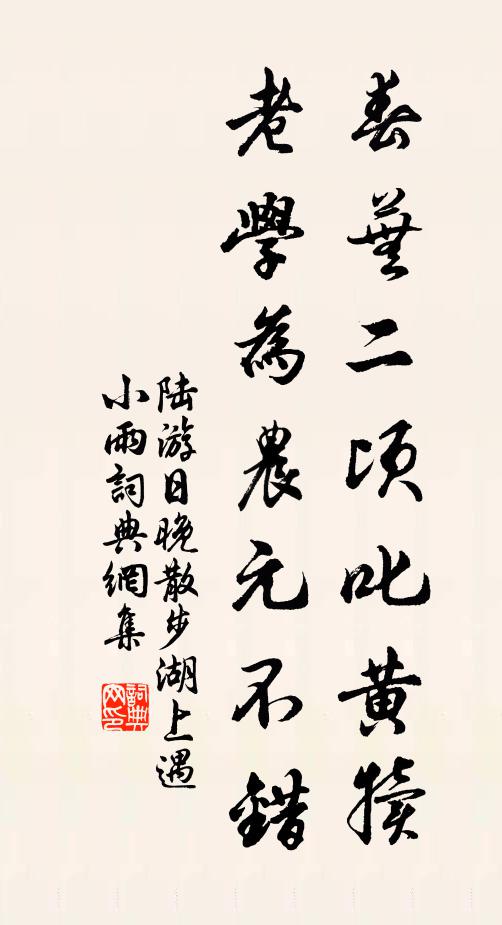 春蕪二頃叱黃犢
老學為農元不錯
陸游日晚散步湖上遇
小雨詞典網集
詞典網印